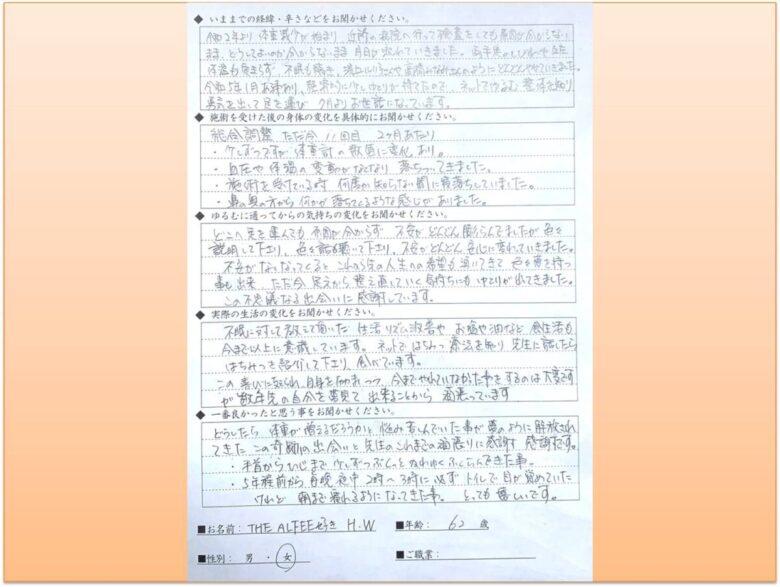 ◆ いままでの経緯・辛さなどをお聞かせください。
令和2年より体重減少が始まり 近所の病院へ行って検査をしても原因が分からない
まま、どうしてよいのか分からないまま 月日が流れていきました。
体温も定まらず 不眠も続き、
令和5年1月お薬
勇気を出して足を運び 9月よりお世話になっています。
◆ 施術を受けた後の身体の変化を具体的にお聞かせください。
総合調整 ただ今 11回目 2ヶ月あたり
・少しずつですが 体重計の数値に変化あり。
・血圧や体温の変動がなくなり 落ちついてきました。
・施術を受けている時 何度か知らない間に寝落ちしていました。
・鼻の奥の方から何かが落ちてくるような感じがありました。
◆ ゆるむに通ってからの気持ちの変化をお聞かせください。
どこへ足を運んでも 原因が分からず 不安がどんどん膨らんでましたが 色々
説明して下さり、色々話も聴いて下さり、不安がどんどん安心に変わっていきました。
不安がなくなってくると これから先の人生への希望も湧いてきて 色々夢を持つ
事も出来、ただ今 足元から整え直していく気持ちにも ゆとりが出てきました。
この不思議なる出会いに感謝しています。
◆ 実際の生活の変化をお聞かせください。
不眠に対して教えて頂いた 生活リズム改善や お塩や油など 食生活も
今まで以上に意識しています。ネットではちみつ療法を知り 先生に話したら
はちみつを紹介して下さり 食べています。
この 今までやれていなかった事をするのは大変です
が 数年先の自分を夢見て 出来ることから 頑張っています
◆ 一番良かったと思う事をお聞かせください。
どうしたら 体重が増えるだろうかと 悩み苦しんでいた事が 夢のように解放され
てきた この奇跡の出会いと先生のこれまでの頑張りに感謝 感謝です。
・手首からひじまで 少しずつふくらんできた事。
・5年程前から 毎晩 夜中 2時〜3時に必ず トイレで目が覚めていた
けれど 朝まで寝れるようになってきた事。 とっても嬉しいです。
■お名前： THE ALFEE好き H.W ■年齢： 62 歳
■性別： 男 ・ 女 ■ご職業：